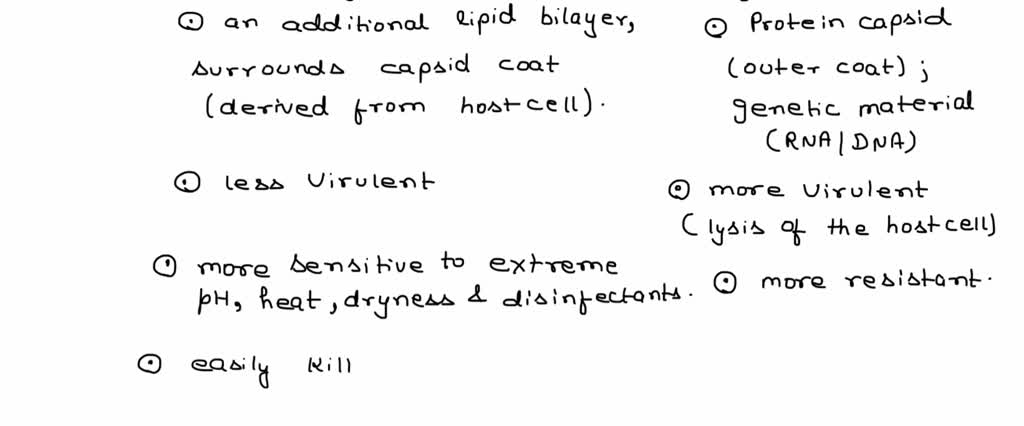 ⊙ an additional lipid bilayer,
surrounds capsid coat
(derived from host cell).
⊙ less virulent
⊙ more sensitive to extreme
pH, heat, dryness & disinfectants.
⊙ easily kill
⊙ Protein capsid
(outer coat) ;
genetic material
(RNA/DNA)
⊙ more virulent
(lysis of the host cell)
⊙ more resistant.